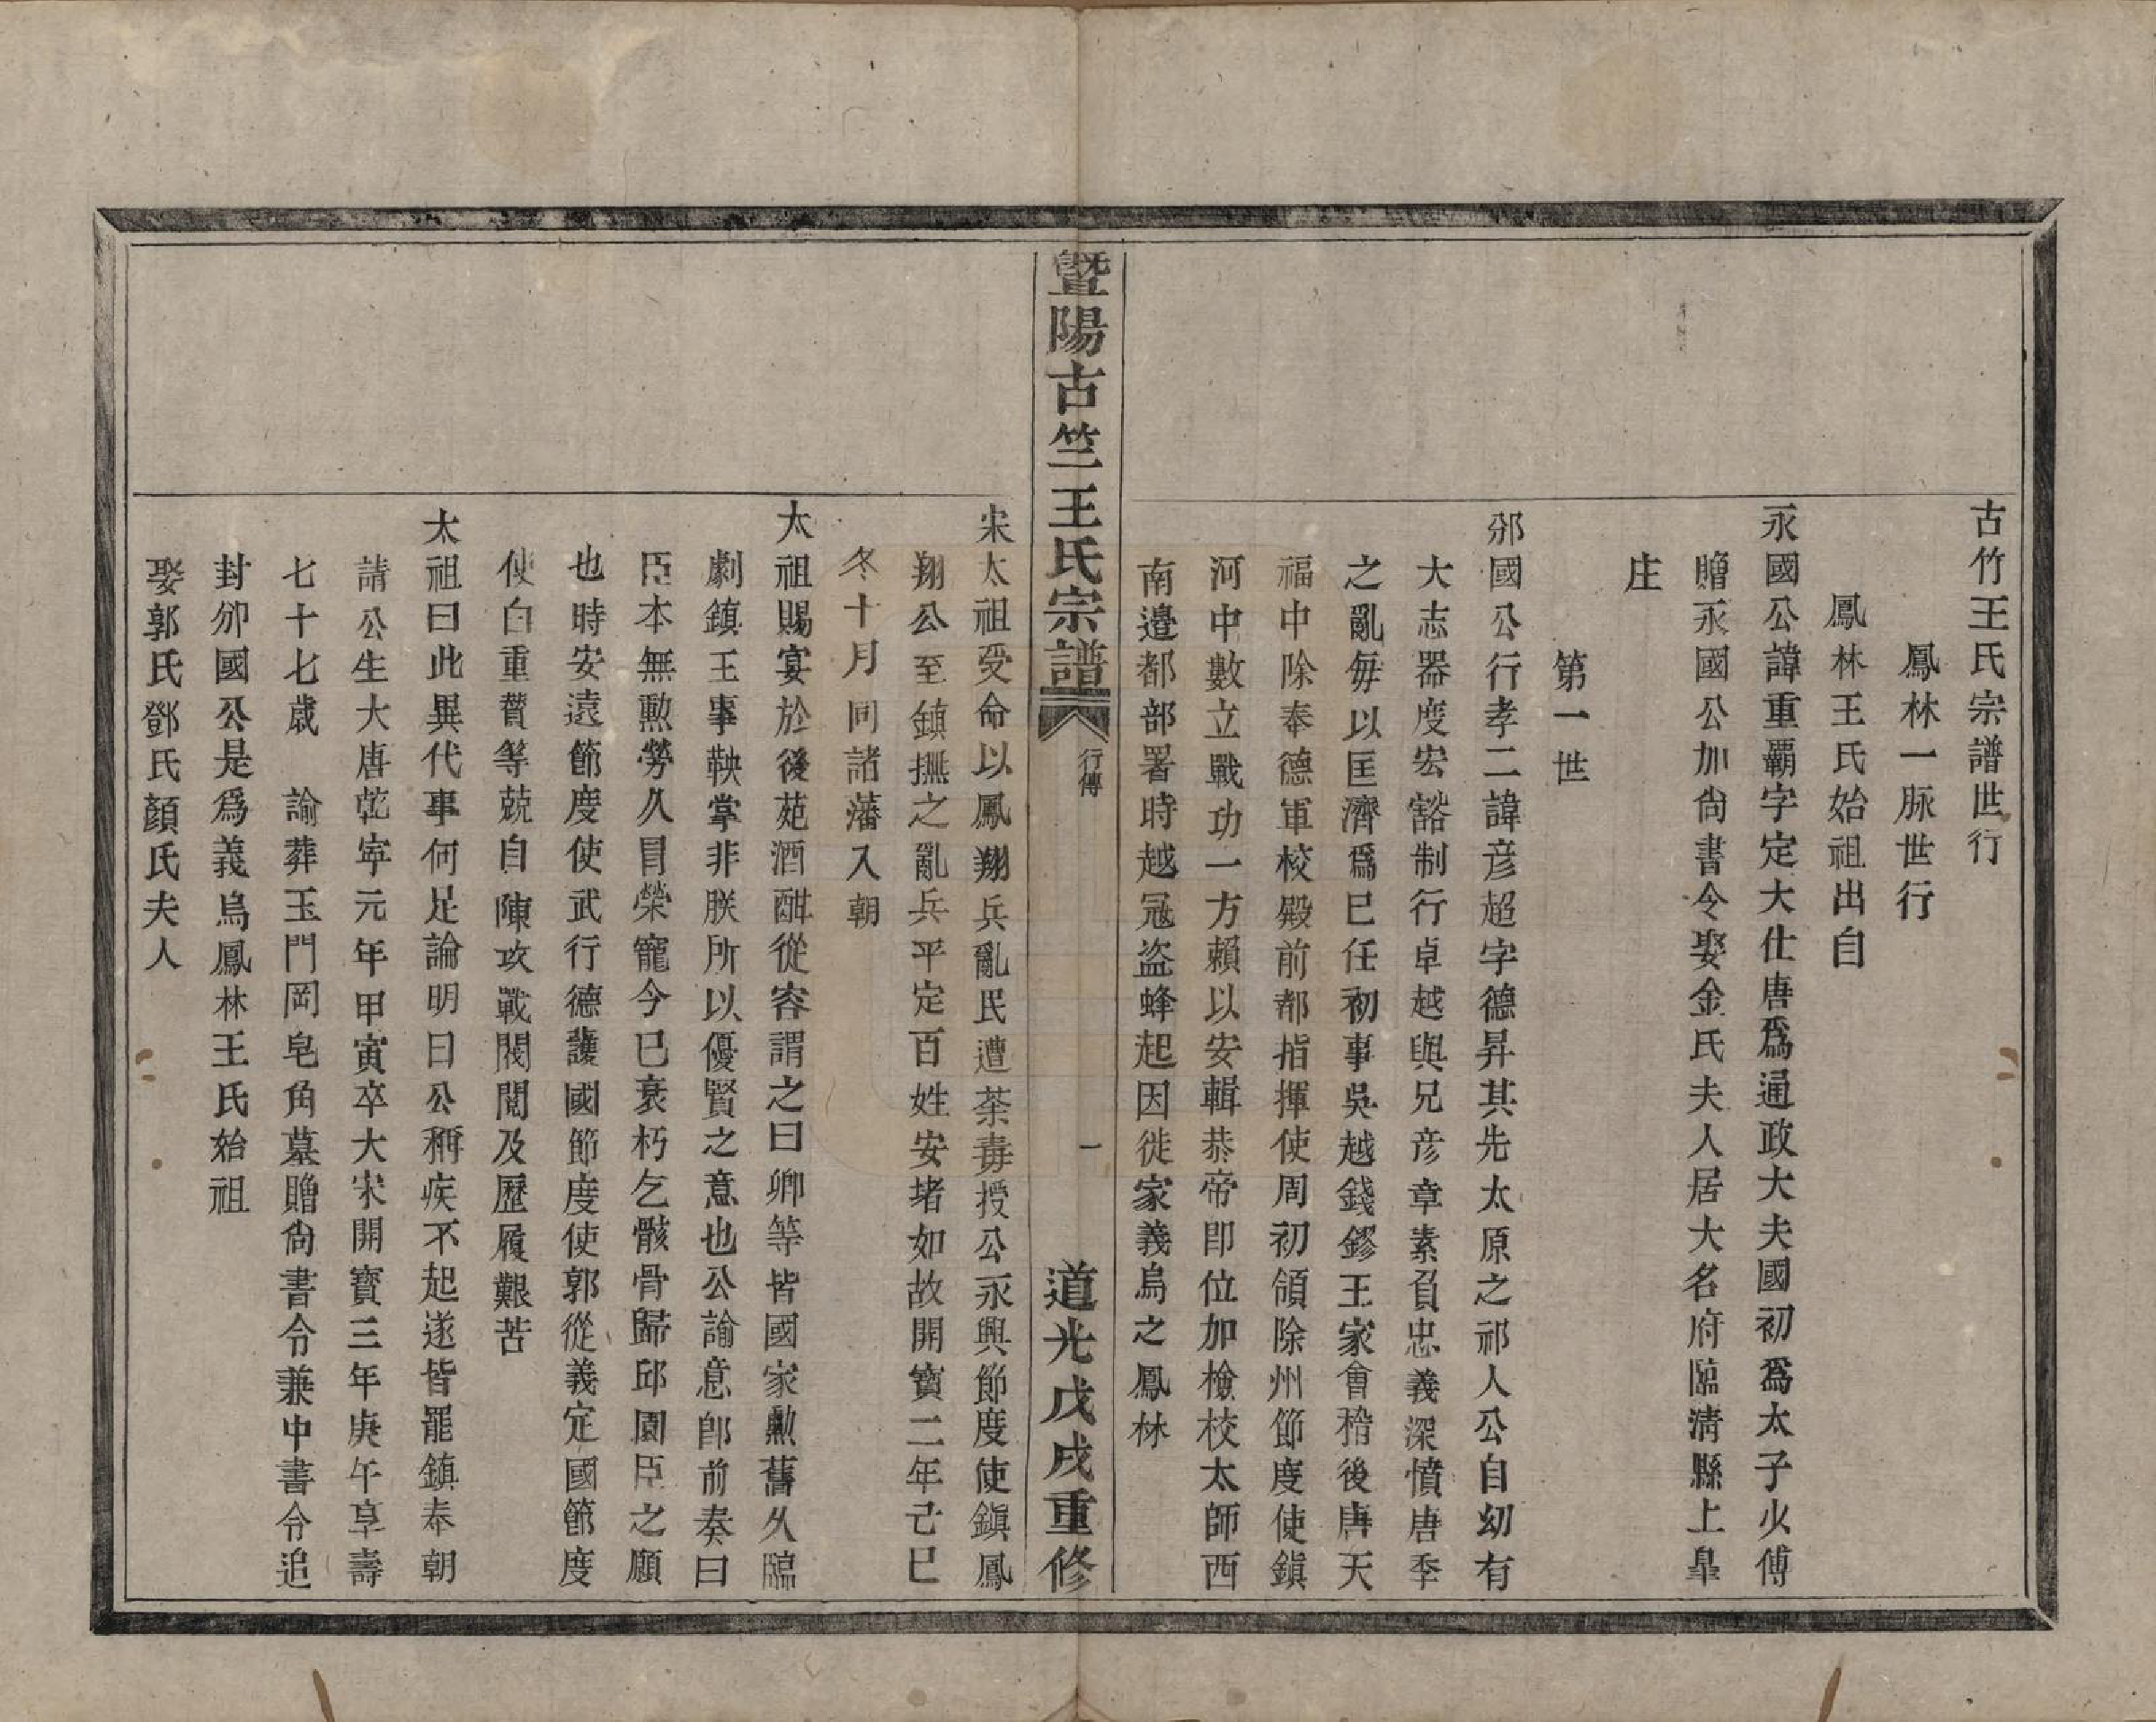 古竹王氏宗譜世行
鳳林一脈世行
鳳林王氏始祖出自
永國公諱重霸字定大仕唐爲通政大夫國初爲太子火傅
贈永國公加尙書令娶金氏夫人居大名府臨淸縣上臯
庄
第一世
邠國公行孝二諱彦超字德昇其先太原之祁人公自幼有
大志器度宏豁制行卓越與兄彦章素負忠義深憤唐季
之亂每以匡濟爲已任初事吳越錢鏐王家會稽後唐天
福中除奉德軍校殿前都指揮使周初領除州節度使鎭
河中數立戰功一方賴以安輯恭帝即位加檢校太師西
南邉都部署時越冦盗蜂起因徙家義烏之鳳林
暨陽古竺王氏宗譜
行傳
一
道光戊戌重修
宋太祖受命以鳳翔兵亂民遭荼毒授公永興節度使鎭鳳
翔公至鎮撫之亂兵平定百姓安堵如故開寶二年己巳
冬十月同諸藩入朝
太祖賜宴於後苑酒酣從容謂之曰卿等皆國家勲舊久臨
劇鎮王事鞅掌非朕所以優賢之意也公諭意卽前奏曰
臣本無勲勞久冒榮寵今已衰朽乞骸骨歸邱園臣之願
也時安遠節度使武行德護國節度使郭從義定國節度
使白重贊等競自陳攻戰閥閱及歷履艱苦
太祖曰此異代事何足論明日公稱疾不起遂皆罷鎮奉朝
請公生大唐乾寜元年甲寅卒大宋開寶三年庚午享壽
七十七歲　諭葬玉門岡皂角墓贈尙書令兼中書令追
封邠國公是爲義烏鳳林王氏始祖
娶郭氏鄧氏顔氏夫人